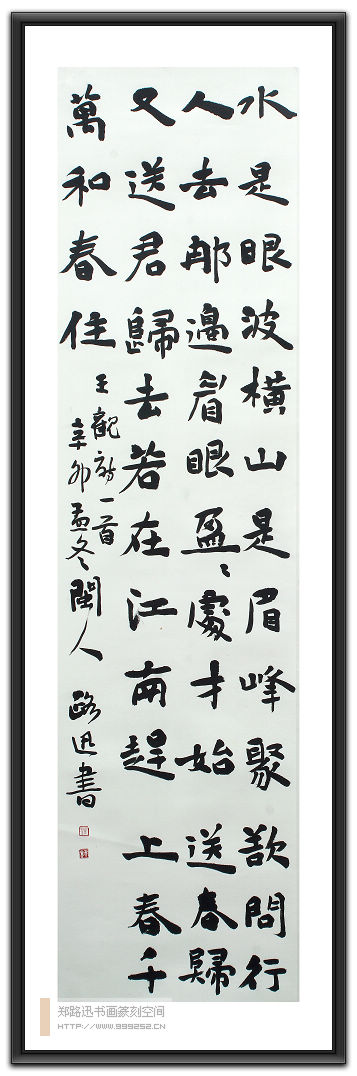 水是眼波橫山是眉峰聚欲問行
人去那邊眉眼盈〻處才始送春歸
又送君歸去若在江南趕上春千
萬和春住
王觀詞一首
辛卯孟冬閩人路迅書
郑路迅书画篆刻空间
HTTP://WWW.999252.CN